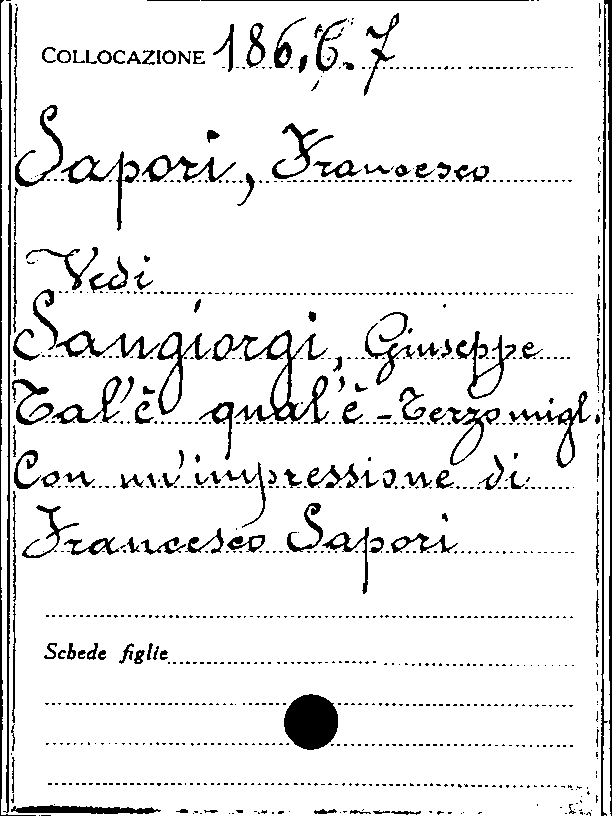 COLLOCAZIONE 186.C.7
Sapori, Francesco
Vedi
Sangiorgi, Giuseppe
Tal'è qual'è - Terzo migl.
Con un'impressione di
Francesco Sapori
Schede figlie